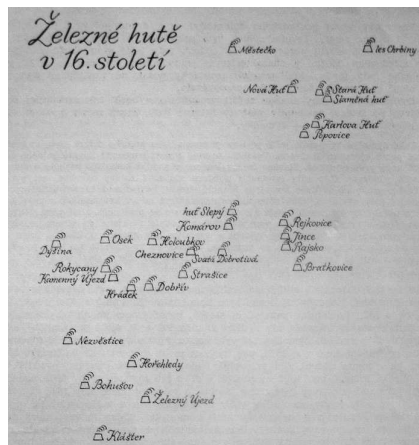 Železné hutě
v 16. století
Městečko
les Chrbiny
Nová Huť
Stará Huť
Slaměná huť
Karlova Huť
Popovice
huť Slepý
Komárov
Rejkovice
Jince
Rajsko
Bratkovice
Osek
Holoubkov
Dýšina
Cheznovice
Svatá Dobrotivá
Rokycany
Kamenný Újezd
Strašice
Hrádek
Dobřív
Nezvěstice
Hořehledy
Bohušov
Železný Újezd
Klášter